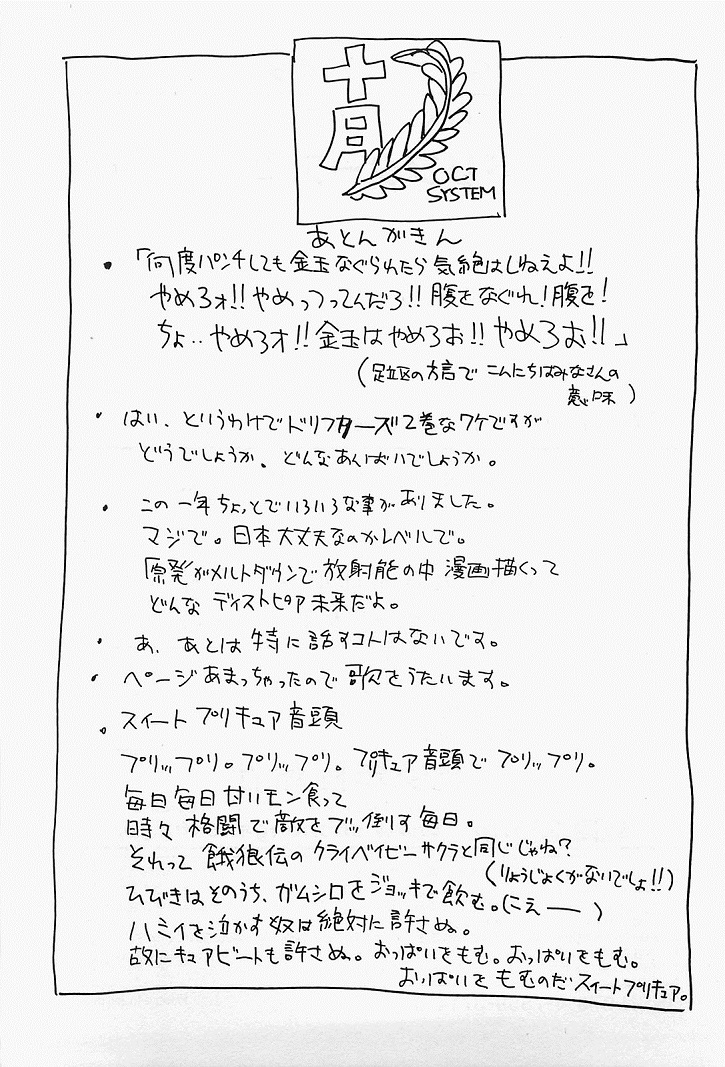 十月
OCT
SYSTEM
あとんがきん
・「何度パンチしても金玉なぐられたら気絶はしねえよ!!
やめろォ!!やめってってんだろ!!腹をなぐれ!腹を!
ちょ‥やめろオ!!金玉はやめろお!!やめろお!!」
(足立区の方言でこんにちはみなさんの
意味)
・はい、というわけでドリフターズ2巻なワケですが
どうでしょうか、どんなあんばいでしょうか。
・この一年ちょっとでいろいろな事がありました。
マジで。日本大丈夫なのかレベルで。
原発がメルトダウンで放射能の中漫画描くって
どんなディストピア未来だよ。
・あ、あとは特に話すコトはないです。
・ページあまっちゃったので歌をうたいます。
・スイートプリキュア音頭
プリップリ。プリップリ。プリキュア音頭でプリップリ。
毎日毎日甘いモン食って
時々格闘で敵をブッ倒す毎日。
それって餓狼伝のクライベイビーサクラと同じじゃね?
(りょうじょくがないでしょ!!)
ひびきはそのうち、ガムシロをジョッキで飲む。(こえー)
ハミィを泣かす奴は絶対に許さぬ。
故にキュアビートも許さぬ。おっぱいをもむ。おっぱいをもむ。
おっぱいをもむのだスイートプリキュア。